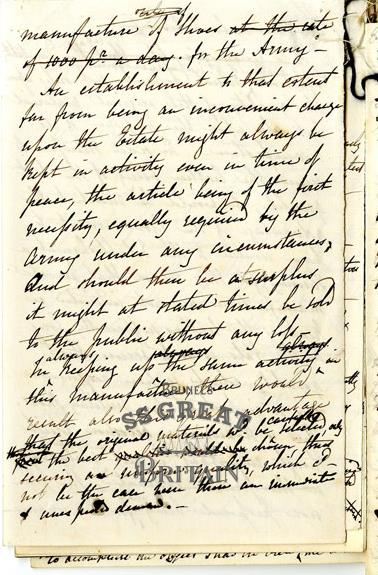 scale of
manufacture of Shoes at the rate
of 1000 pr. a day. for the Army —
An establishment to that extent
far from being an inconvenient charge
upon the Estate might always be
kept in activity even in time of
peace, the article being of the first
necessity, equally required by the
Army under any circumstances,
And should there be a surplus
it might at stated times be sold
to the public without any loss.
always always always
In keeping up the same activity in
this manufactory there would
BRUNEL'S
result also advantage
SS GREAT
BRITAIN
that the original materials wd be selected only
the best chosen thus
securing an quality, which cd
not be the case were there an immediate
& unexpected demand. —
to accomplish the object